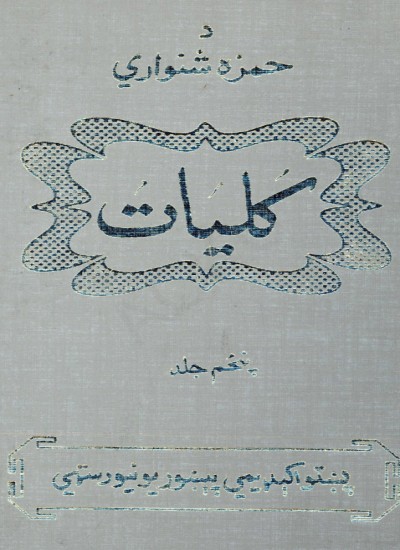 د
حمزه شنواري
کُليات
پنځم جلد
پښتو اکېډيمي پېښور يونيورسټي